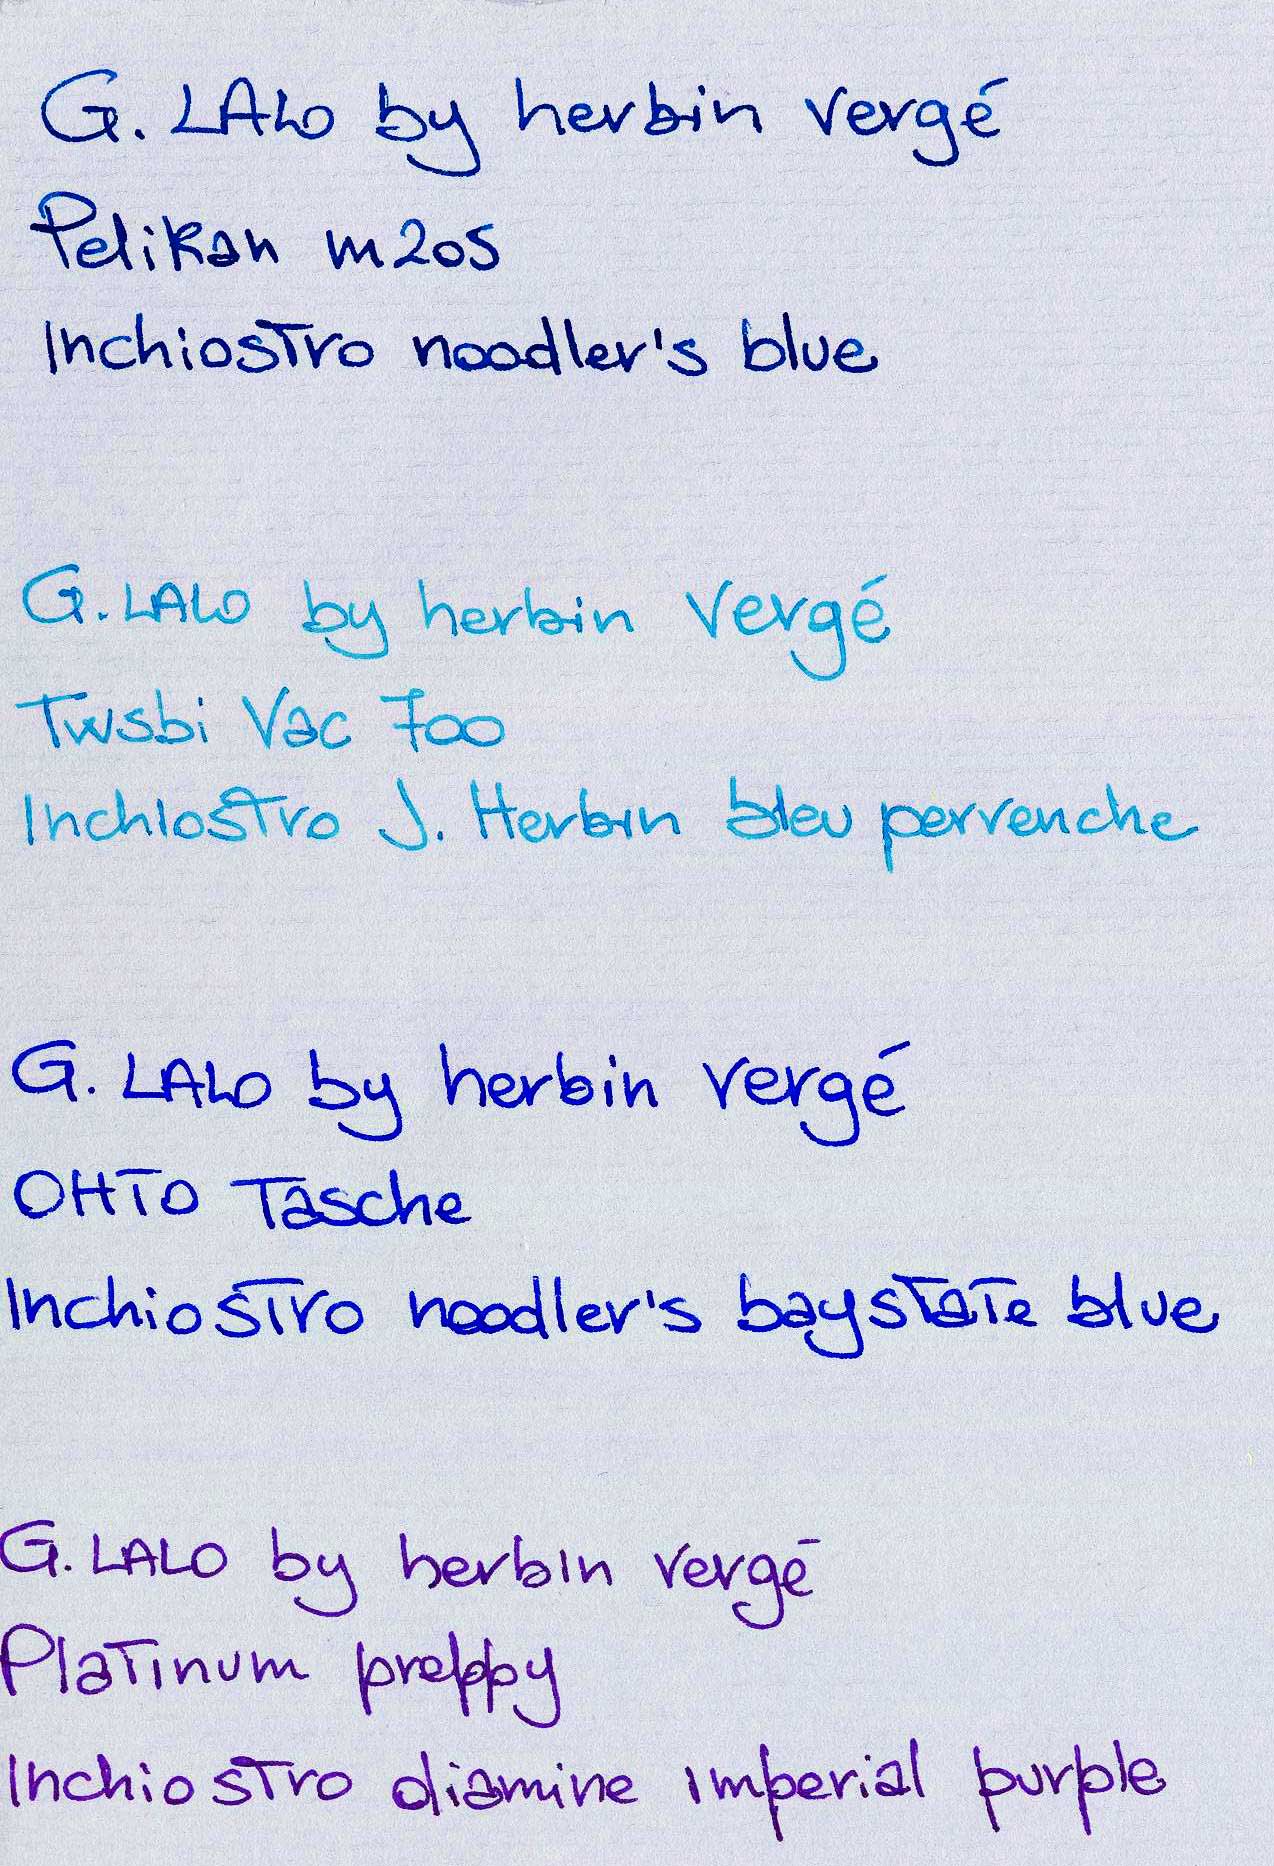 G. LALO by herbin vergé
Pelikan m205
Inchiostro noodler's blue
G. LALO by herbin vergé
Twsbi Vac 700
Inchiostro J. Herbin bleu pervenche
G. LALO by herbin vergé
OHTO Tasche
Inchiostro noodler's baystate blue
G. LALO by herbin vergé
Platinum preppy
Inchiostro diamine imperial purple